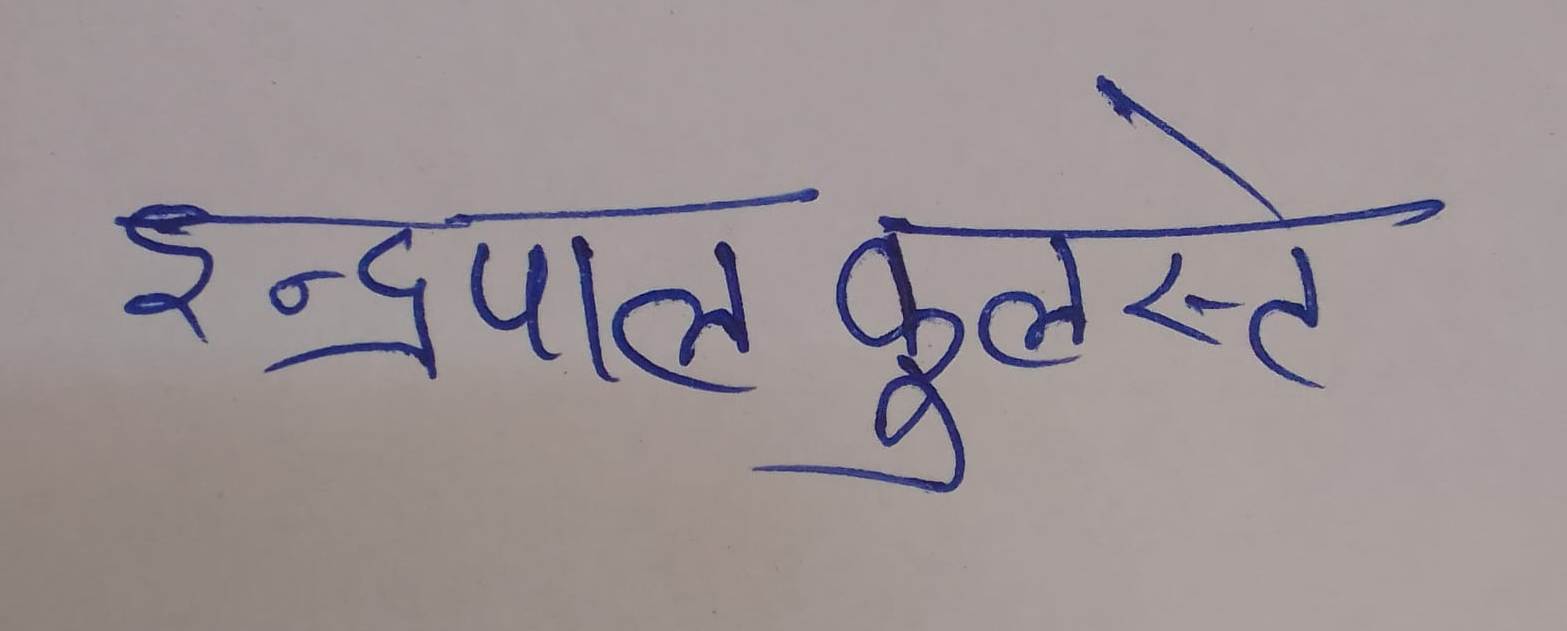 इन्द्रपाल कुलस्ते